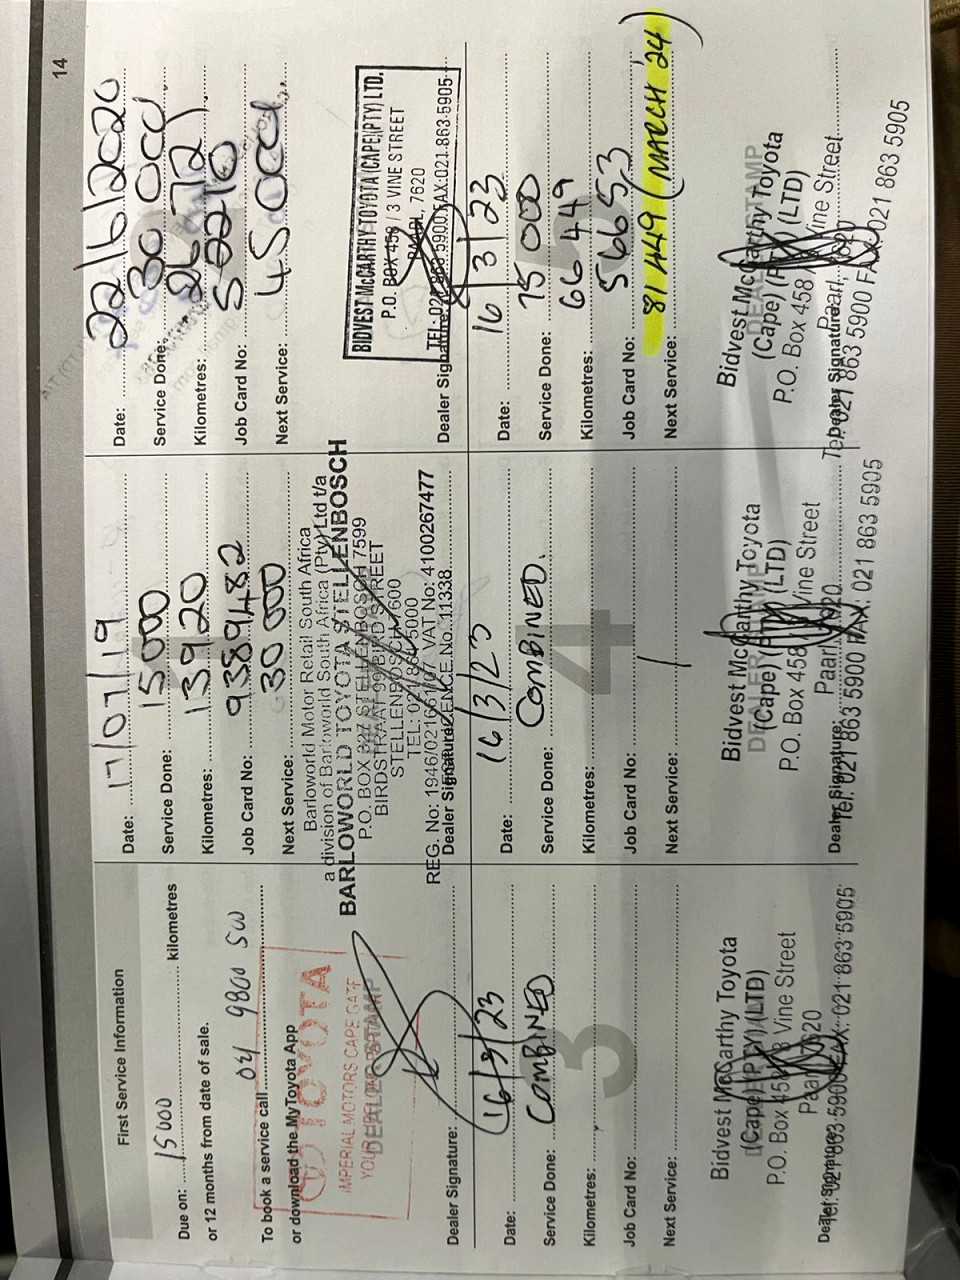 14
First Service Information
Due on: 15000 kilometres
or 12 months from date of sale.
To book a service call
or download the MyToyota App
TOYOTA
IMPERIAL MOTORS CAPE GATE
DEALER STAMP
Dealer Signature:
Date: 17/07/19
Service Done: 15000
Kilometres: 13920
Job Card No: 9389482
Next Service: 30 000
Barloworld Motor Retail South Africa
a division of Barloworld South Africa (Pty) Ltd t/a
BARLOWORLD TOYOTA STELLENBOSCH
P.O. BOX STELLENBOSCH 7599
BIRD STREET
STELLENBOSCH 7600
TEL: 021
REG. No: 1946/021661/07 VAT No: 4100267477
Dealer Signature: 11338
Date: 22/6/2020
Service Done: 30 000
Kilometres: 26721
Job Card No: 52210
Next Service: 45 000
BIDVEST McCARTHY TOYOTA (CAPE)(PTY) LTD.
P.O. BOX 458 / 3 VINE STREET
PAARL, 7620
TEL: 021 863 5900 FAX:021.863.5905
Dealer Signature:
3
Date: 16/3/23
Service Done: COMBINED
Kilometres:
Job Card No:
Next Service:
Bidvest McCarthy Toyota
(Cape) (PTY) (LTD)
P.O. Box 458 3 Vine Street
Paarl 7620
Tel: 021 863 5900 FAX: 021 863 5905
Dealer Signature:
4
Date: 16/3/23
Service Done: COMBINED.
Kilometres:
Job Card No:
Next Service: /
Bidvest McCarthy Toyota
(Cape) (PTY) (LTD)
P.O. Box 458 Vine Street
Paarl 7620
Tel: 021 863 5900 FAX: 021 863 5905
Dealer Signature:
5
Date: 16/3/23
Service Done: 75 000
Kilometres: 66 449
Job Card No: 566653
Next Service: 81 449 (MARCH '24)
DEALER STAMP
Bidvest McCarthy Toyota
(Cape) (PTY) (LTD)
P.O. Box 458 Vine Street
Paarl, 7620
Tel: 021 863 5900 FAX: 021 863 5905
Dealer Signature: